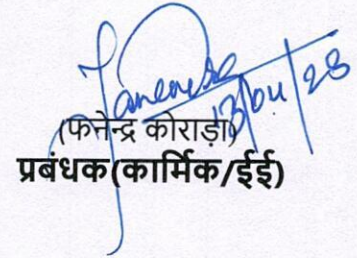 13/04/23
(फनेन्द्र कोराड़ा)
प्रबंधक(कार्मिक/ईई)